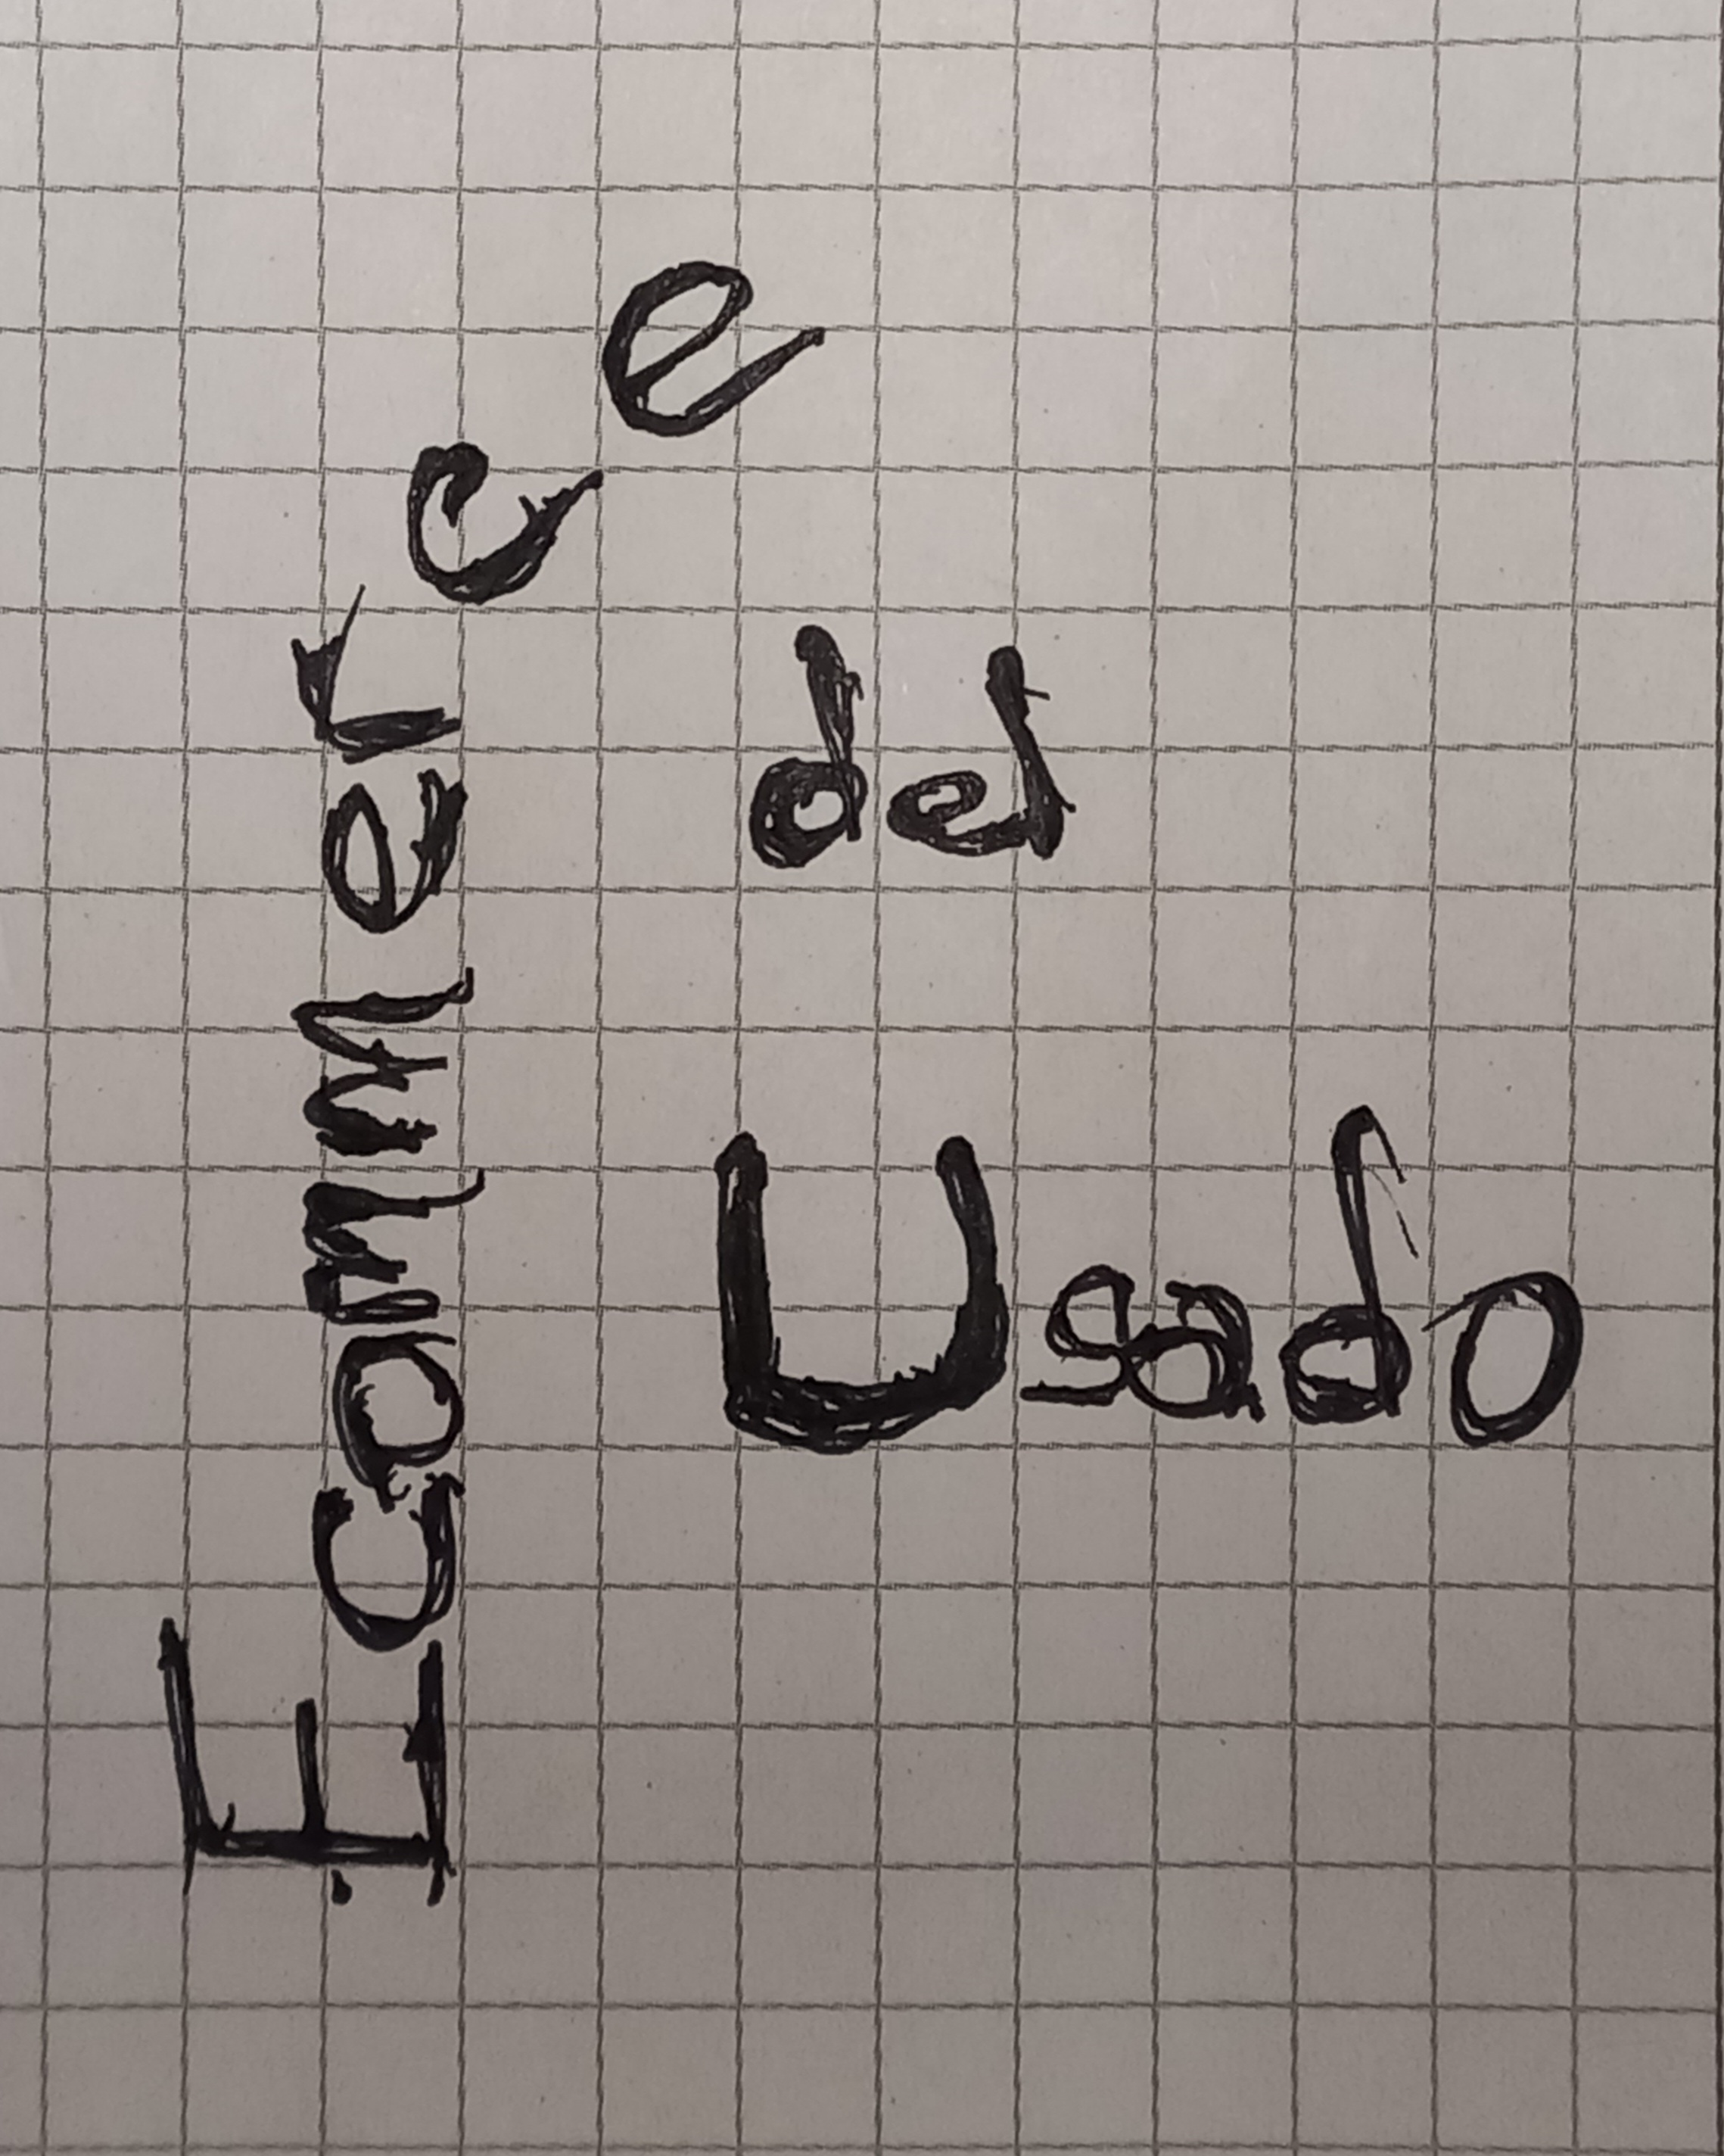 Ecommerce
del
Usado